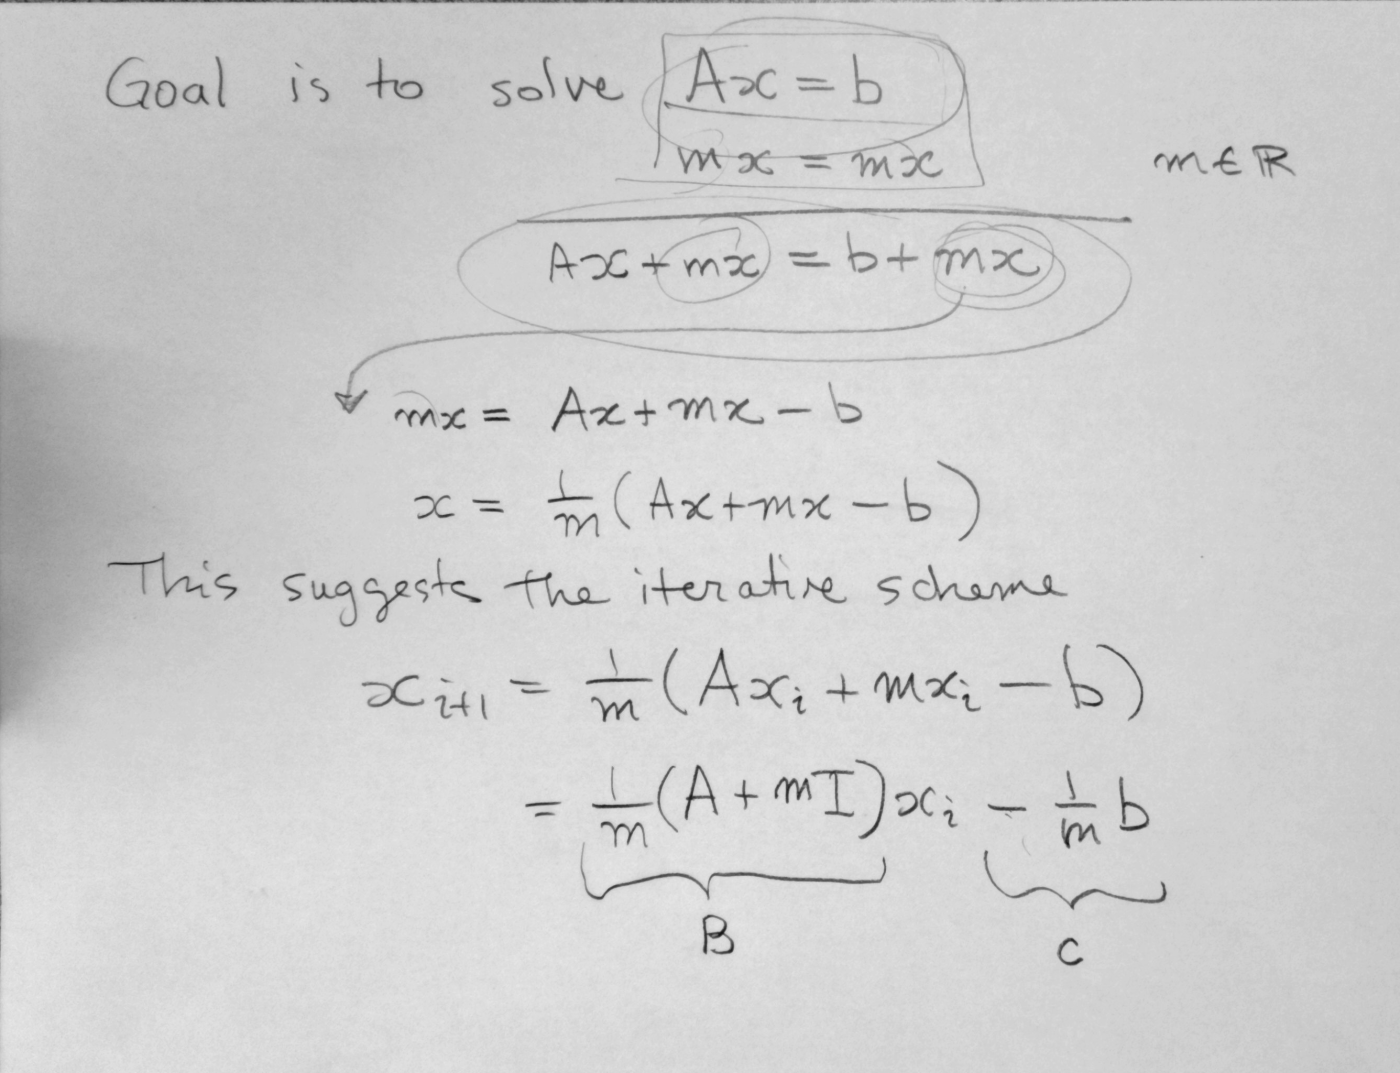 Goal is to solve Ax = b
mx = mx m ∈ ℝ
Ax + mx = b + mx
mx = Ax + mx − b
x = 1/m (Ax + mx − b)
This suggests the iterative scheme
x_{i+1} = 1/m (Ax_i + mx_i − b)
= 1/m (A + mI) x_i − 1/m b
B C